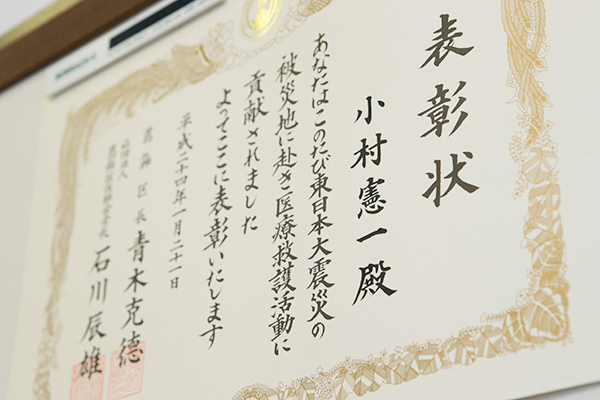 表彰状
小村憲一殿
あなたはこのたび東日本大震災の
被災地に赴き医療救護活動に
貢献されました
よってここに表彰いたします
平成二十四年一月二十一日
葛飾区長 青木克德
石川辰雄